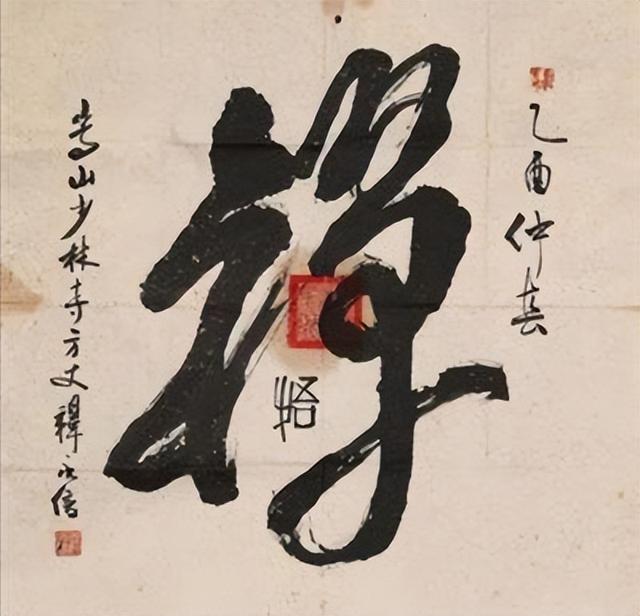 乙酉仲春
禪
悟
嵩山少林寺方丈釋永信